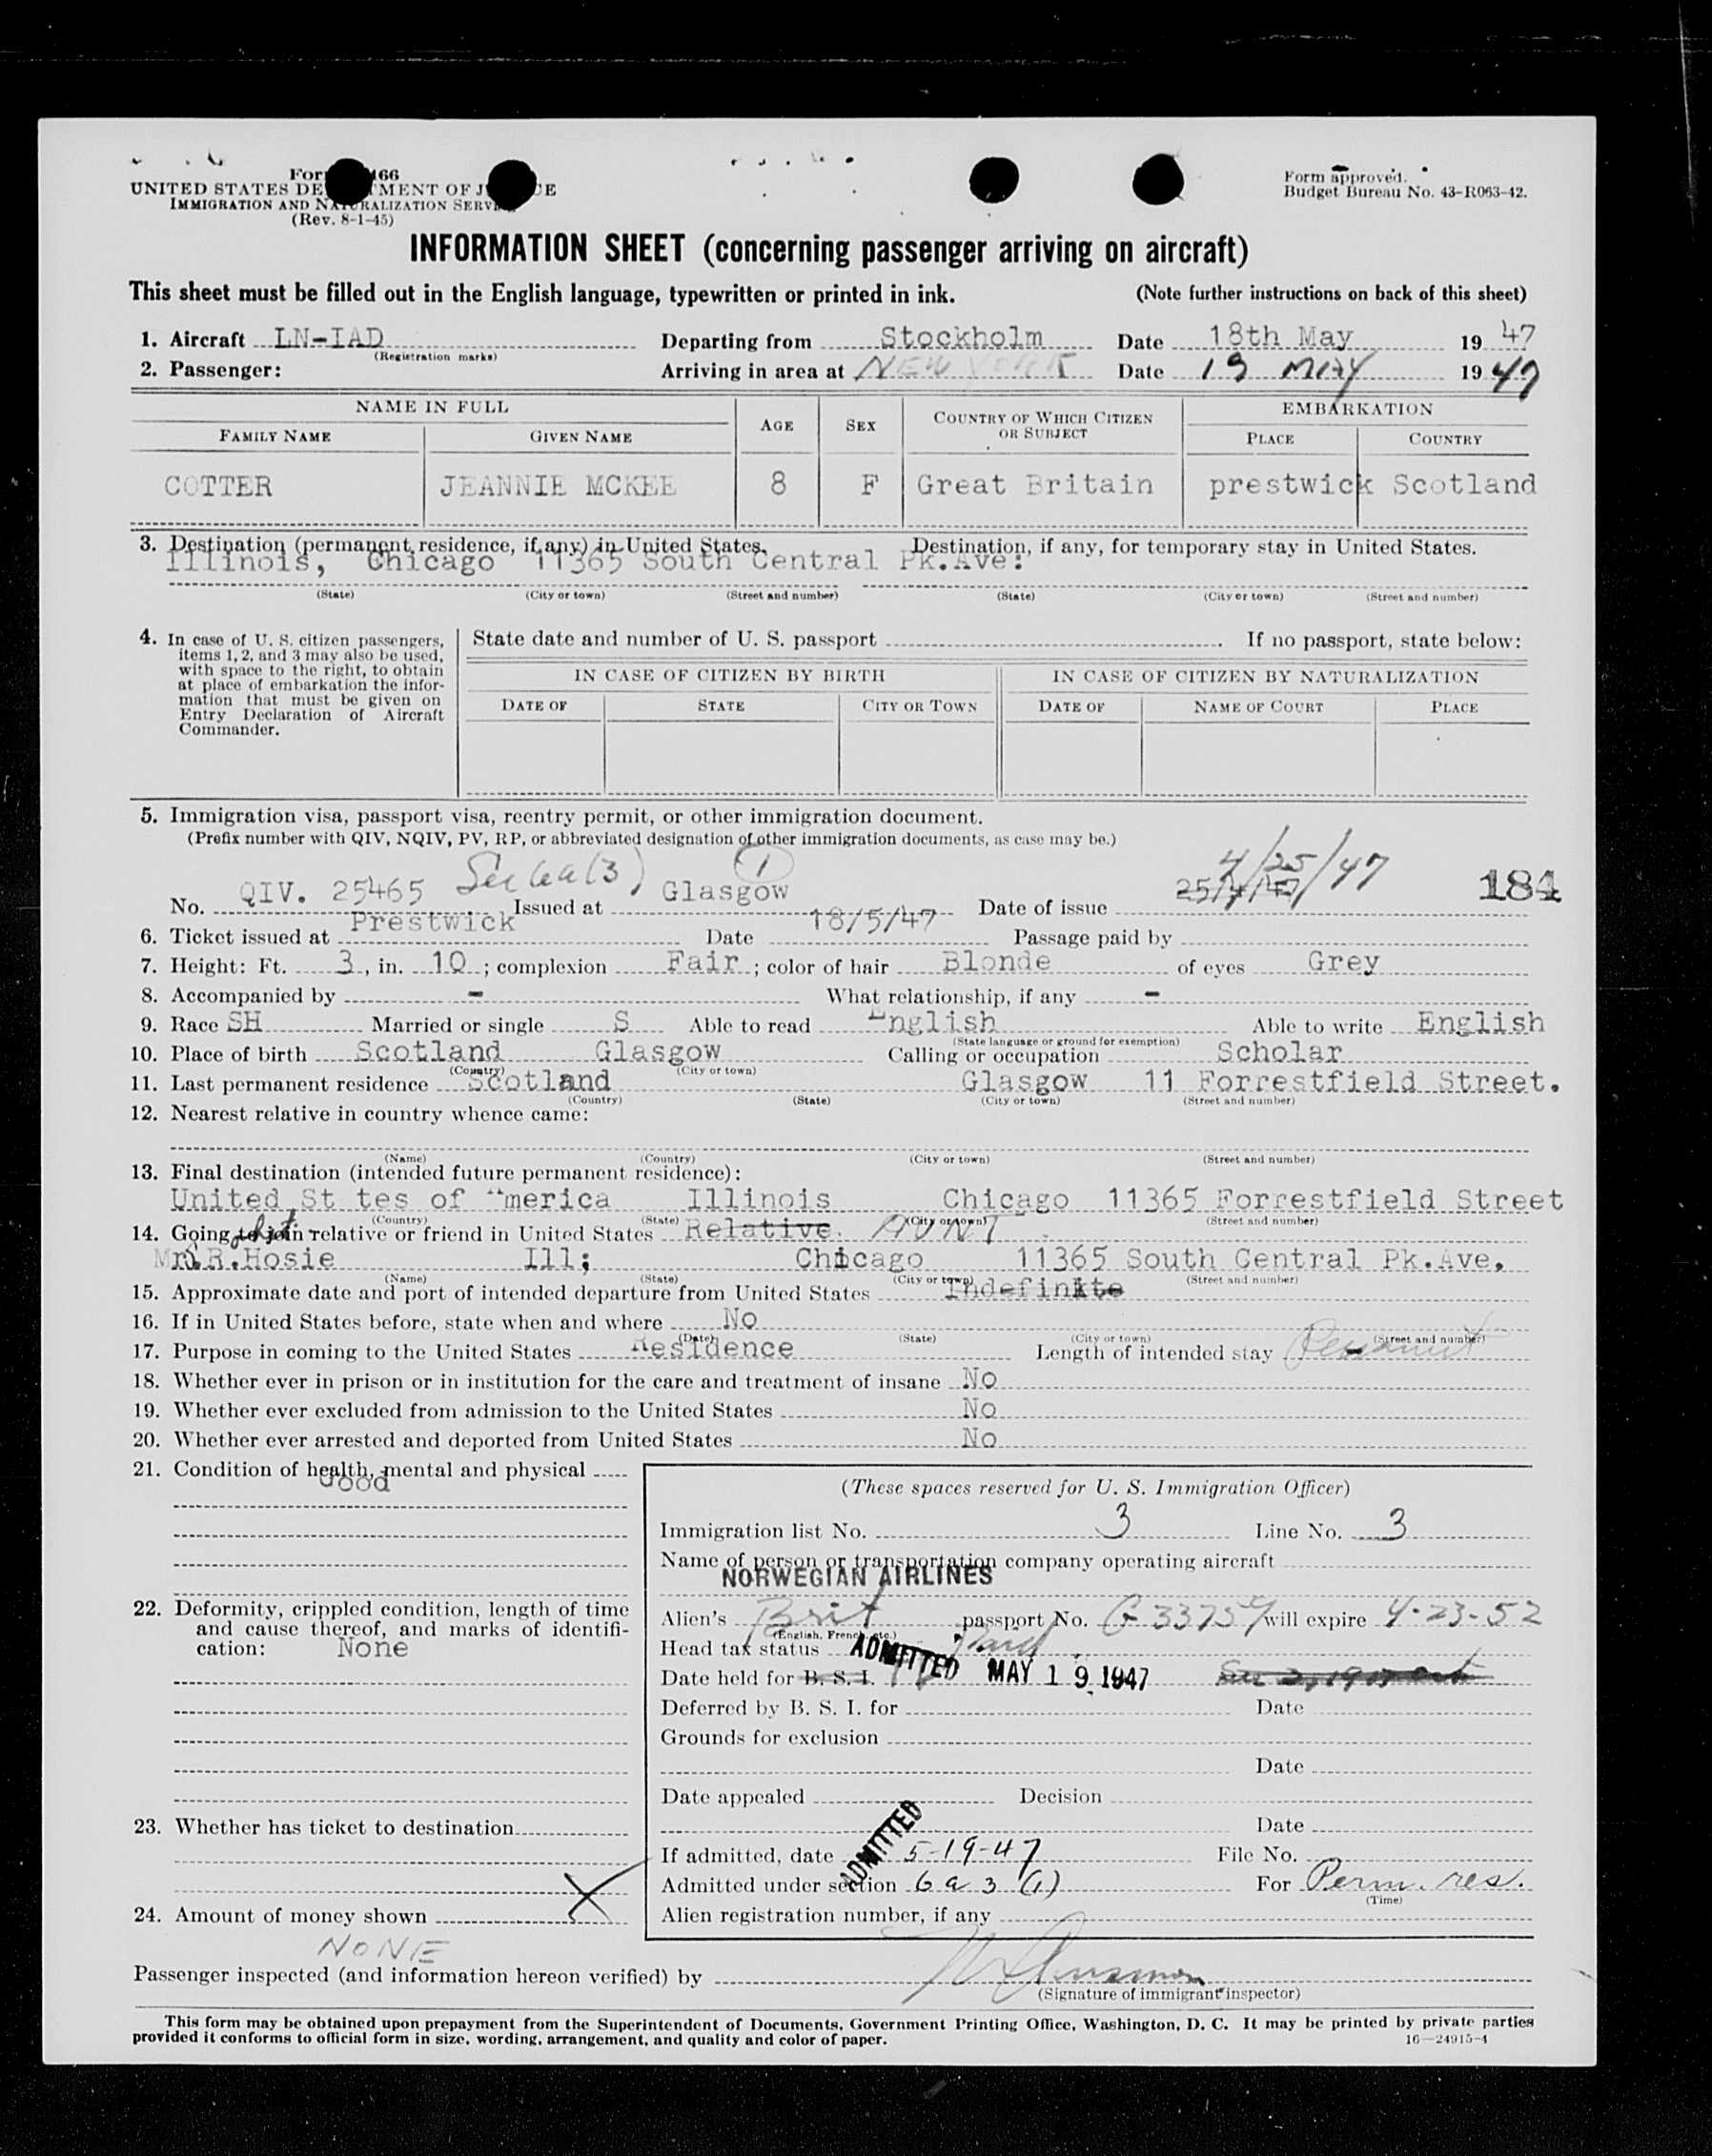 Form 466
UNITED STATES DEPARTMENT OF JUSTICE
IMMIGRATION AND NATURALIZATION SERVICE
(Rev. 8-1-45)
Form approved.
Budget Bureau No. 43-R063-42.
INFORMATION SHEET (concerning passenger arriving on aircraft)
This sheet must be filled out in the English language, typewritten or printed in ink. (Note further instructions on back of this sheet)
1. Aircraft LN-IAD Departing from Stockholm Date 18th May 19 47
(Registration marks)
2. Passenger: Arriving in area at NEW YORK Date 19 MAY 19 47
NAME IN FULL AGE SEX COUNTRY OF WHICH CITIZEN OR SUBJECT EMBARKATION
FAMILY NAME GIVEN NAME PLACE COUNTRY
COTTER JEANNIE MCKEE 8 F Great Britain prestwick Scotland
3. Destination (permanent residence, if any) in United States. Destination, if any, for temporary stay in United States.
Illinois, Chicago 11365 South Central Pk.Ave:
(State) (City or town) (Street and number) (State) (City or town) (Street and number)
4. In case of U. S. citizen passengers,
items 1, 2, and 3 may also be used,
with space to the right, to obtain
at place of embarkation the infor-
mation that must be given on
Entry Declaration of Aircraft
Commander.
State date and number of U. S. passport . If no passport, state below:
IN CASE OF CITIZEN BY BIRTH IN CASE OF CITIZEN BY NATURALIZATION
DATE OF STATE CITY OR TOWN DATE OF NAME OF COURT PLACE
5. Immigration visa, passport visa, reentry permit, or other immigration document.
(Prefix number with QIV, NQIV, PV, RP, or abbreviated designation of other immigration documents, as case may be.)
No. QIV. 25465 Sec 6a(3) (1) Issued at Glasgow Date of issue 25/4/47 4/25/47 184
6. Ticket issued at Prestwick Date 18/5/47 Passage paid by
7. Height: Ft. 3, in. 10; complexion Fair; color of hair Blonde of eyes Grey
8. Accompanied by - What relationship, if any -
9. Race SH Married or single S Able to read English Able to write English
(State language or ground for exemption)
10. Place of birth Scotland Glasgow Calling or occupation Scholar
(Country) (City or town)
11. Last permanent residence Scotland Glasgow 11 Forrestfield Street.
(Country) (State) (City or town) (Street and number)
12. Nearest relative in country whence came:
(Name) (Country) (City or town) (Street and number)
13. Final destination (intended future permanent residence):
United St tes of America Illinois Chicago 11365 Forrestfield Street
(Country) (State) (City or town) (Street and number)
14. Going to join relative or friend in United States Relative. AUNT
Mrs R.Hosie Ill; Chicago 11365 South Central Pk.Ave.
(Name) (State) (City or town) (Street and number)
15. Approximate date and port of intended departure from United States Indefinite
16. If in United States before, state when and where No
(Date) (State) (City or town) (Street and number)
17. Purpose in coming to the United States Residence Length of intended stay Permanent
18. Whether ever in prison or in institution for the care and treatment of insane No
19. Whether ever excluded from admission to the United States No
20. Whether ever arrested and deported from United States No
21. Condition of health, mental and physical
Good
22. Deformity, crippled condition, length of time
and cause thereof, and marks of identifi-
cation: None
23. Whether has ticket to destination
24. Amount of money shown
NONE
(These spaces reserved for U. S. Immigration Officer)
Immigration list No. 3 Line No. 3
Name of person or transportation company operating aircraft
NORWEGIAN AIRLINES
Alien's Brit passport No. G 33754 will expire 4-23-52
(English, French, etc.)
Head tax status Paid
ADMITTED MAY 19 1947
Date held for B. S. I.
Deferred by B. S. I. for Date
Grounds for exclusion
Date
Date appealed Decision
Date
ADMITTED
If admitted, date 5-19-47 File No.
Admitted under section 6 a 3 (1) For Perm. res.
(Time)
Alien registration number, if any
Passenger inspected (and information hereon verified) by
(Signature of immigrant inspector)
This form may be obtained upon prepayment from the Superintendent of Documents, Government Printing Office, Washington, D. C. It may be printed by private parties
provided it conforms to official form in size, wording, arrangement, and quality and color of paper. 16—24915-4